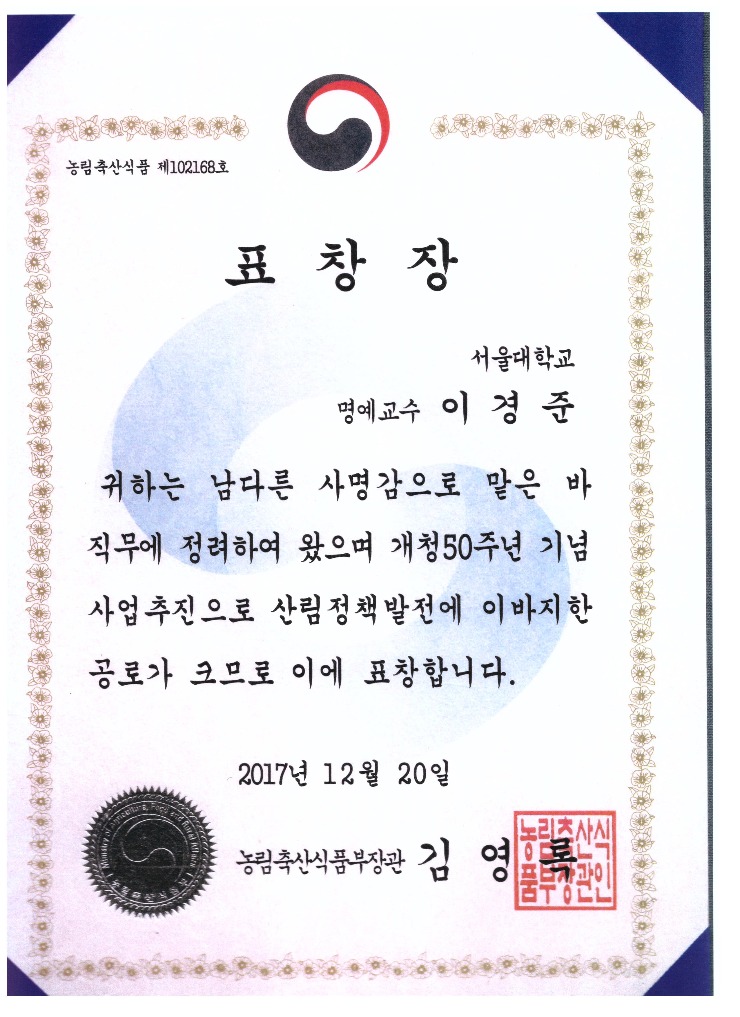 농림축산식품 제102168호
표 창 장
서울대학교
명예교수 이 경 준
귀하는 남다른 사명감으로 맡은 바
직무에 정려하여 왔으며 개청50주년 기념
사업추진으로 산림정책발전에 이바지한
공로가 크므로 이에 표창합니다.
2017년 12월 20일
농림축산식품부장관 김 영 록
농림축산식
품부장관인